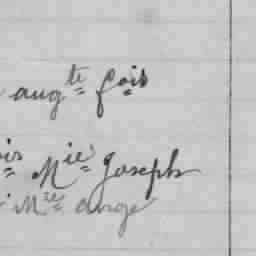 augte fois
ois Mie Joseph
Mie ange